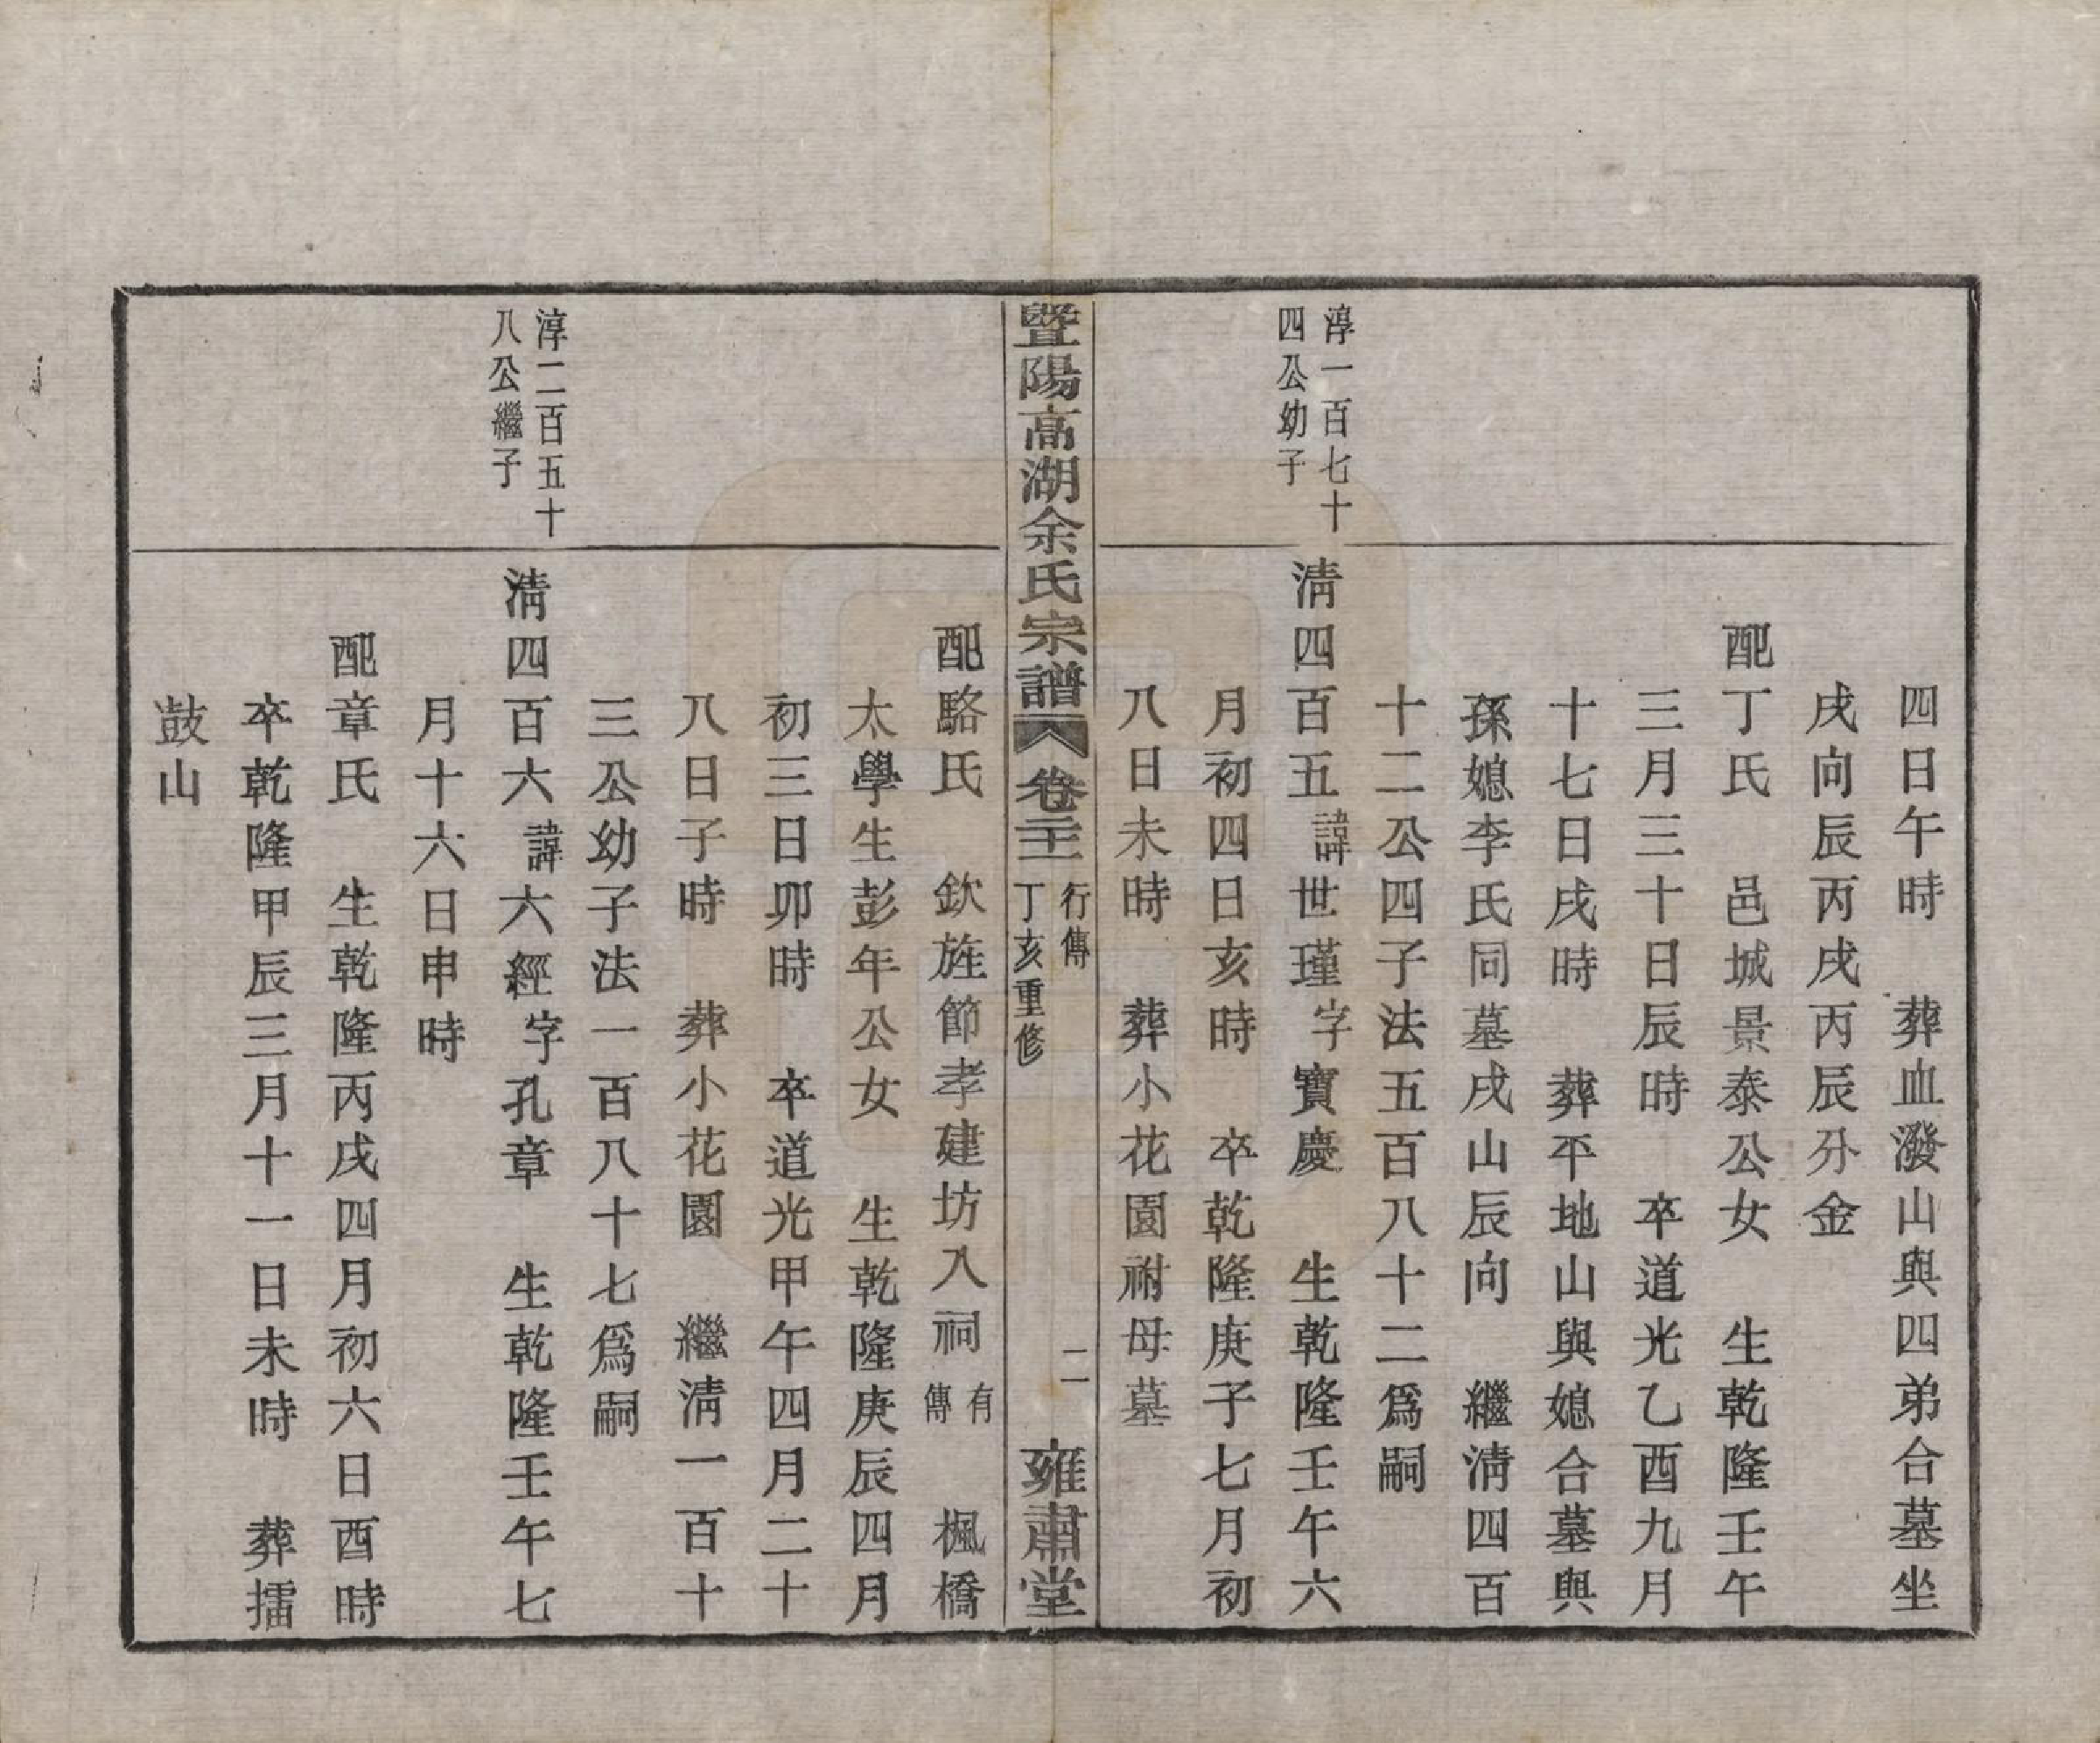 四日午時　葬血潑山與四弟合墓坐
戌向辰丙戌丙辰分金
配丁氏　邑城景泰公女　生乾隆壬午
三月三十日辰時　卒道光乙酉九月
十七日戌時　葬平地山與媳合墓與
孫媳李氏同墓戌山辰向　繼淸四百
十二公四子法五百八十二爲嗣
淳一百七十
四公幼子
淸四百五諱世瑾字寶慶　生乾隆壬午六
月初四日亥時　卒乾隆庚子七月初
八日未時　葬小花園祔母墓
暨陽高湖余氏宗譜
卷二十二
行傳
丁亥重修
二
雍肅堂
配駱氏　欽旌節孝建坊入祠有傳　楓橋
太學生彭年公女　生乾隆庚辰四月
初三日卯時　卒道光甲午四月二十
八日子時　葬小花園　繼淸一百十
三公幼子法一百八十七爲嗣
淳二百五十
八公繼子
淸四百六諱六經字孔章　生乾隆壬午七
月十六日申時
配章氏　生乾隆丙戌四月初六日酉時
卒乾隆甲辰三月十一日未時　葬擂
鼓山